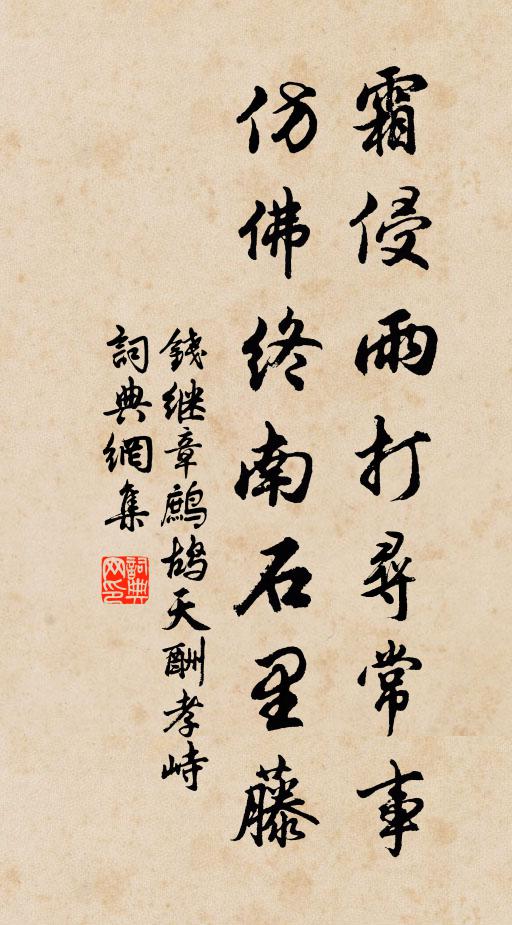 霜侵雨打尋常事
仿佛終南石里藤
錢继章鷓鴣天酬孝峙
詞典網集
詞典网印